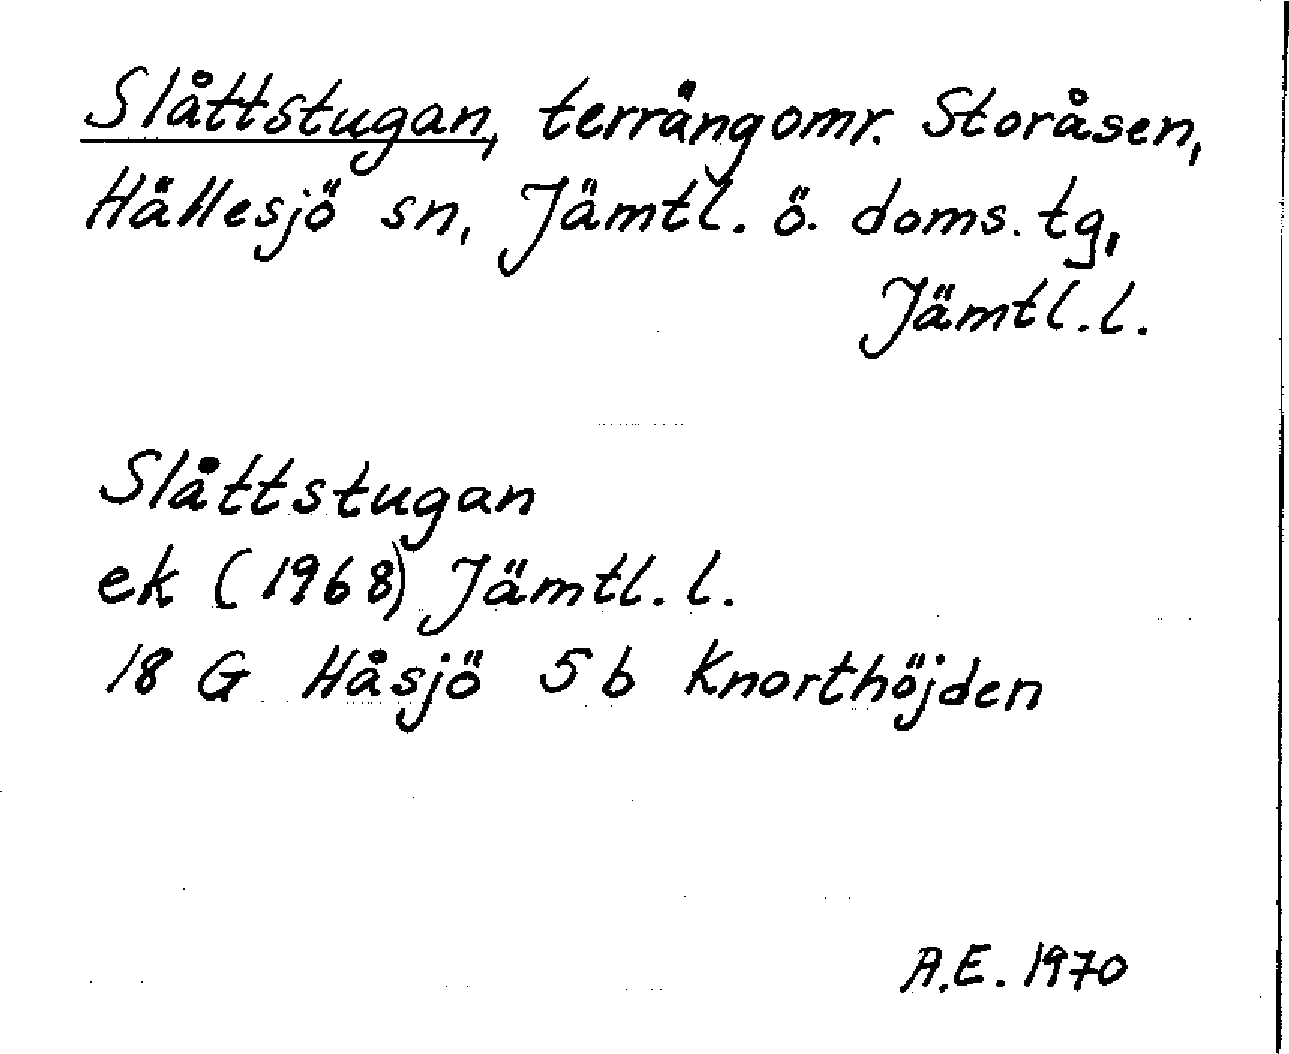 Slåttstugan, terrängomr. Storåsen,
Hällesjö sn, Jämtl. ö. doms. tg,
Jämtl. l.
Slåttstugan
ek (1968) Jämtl. l.
18 G Håsjö 5 b Knorthöjden
A.E. 1970